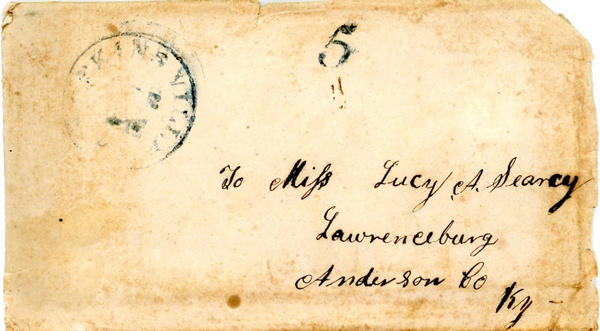 5
To Miss Lucy A. Searcy
Lawrenceburg
Anderson Co
Ky -